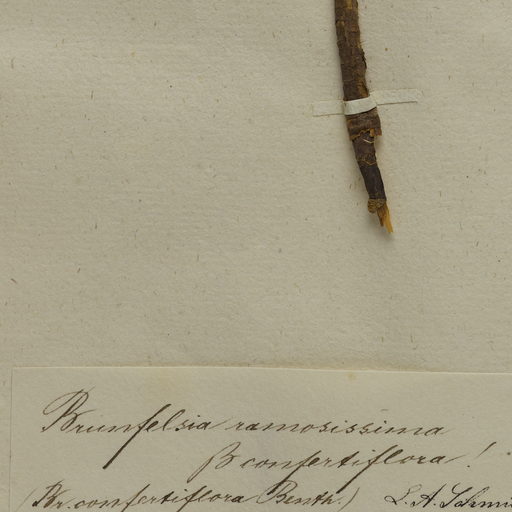 Brunfelsia ramosissima
β confertiflora!
(Br. confertiflora Benth.) L. A. Schmi